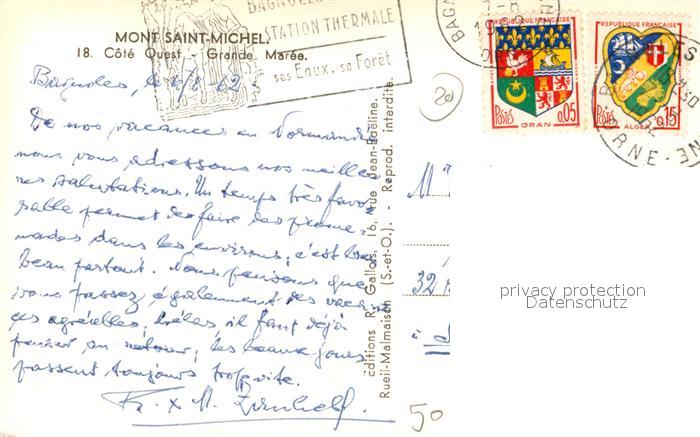 MONT SAINT-MICHEL
18. Côté Ouest - Grande Marée.
BAGNOLES
STATION THERMALE
ses Eaux. sa Forêt
BAGN
7-8
19
ORNE
REPUBLIQUE FRANÇAISE
POSTES
0,05
ORAN
REPUBLIQUE FRANÇAISE
POSTES
0,15
ALGER
ORNE
Bagnoles, le 6/8/62
20
De nos vacances en Normandie
nous vous adressons nos meilleu-
res salutations. Un temps très favo-
rable permet de faire des prome-
nades dans les environs, c'est très
beau partout. Nous pensons que
vous passez également des vacan-
ces agréables, hélas, il faut déjà
penser au retour, les beaux jours
passent toujours trop vite.
Editions R. Gallois, 16, rue Jean-Edeline.
Rueil-Malmaison (S.-et-O.). - Reprod. interdite.
M
32
à
50
privacy protection
Datenschutz